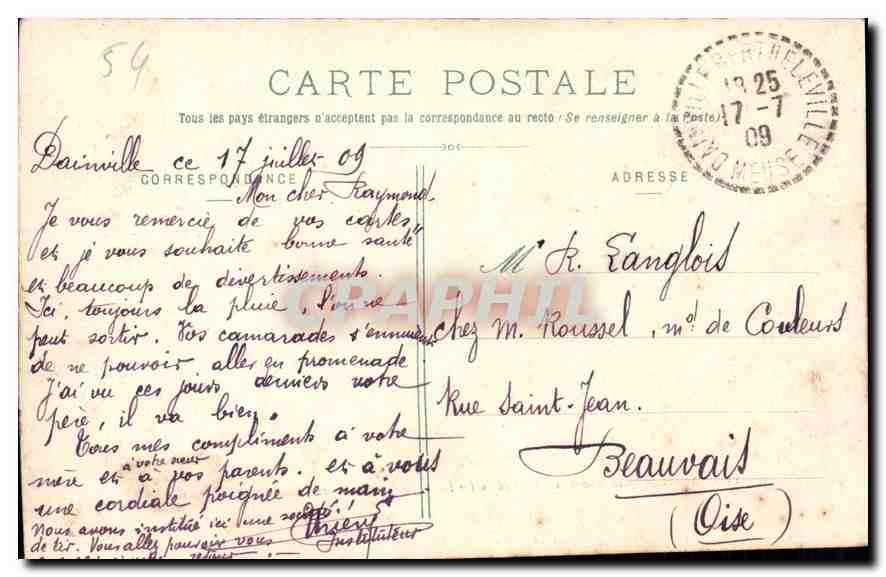 54
CARTE POSTALE
Tous les pays étrangers n'acceptent pas la correspondance au recto (Se renseigner à la Poste)
DAINVILLE-BERTHELEVILLE
18 25
17 -7
09
MEUSE
Dainville ce 17 juillet 09
CORRESPONDANCE
ADRESSE
Mon cher Raymond,
Je vous remercie de vos cartes
et je vous souhaite bonne santé
et beaucoup de divertissements.
Ici, toujours la pluie, l'on ne
peut sortir. Vos camarades s'ennuient
de ne pouvoir aller en promenade
J'ai vu ces jours derniers votre
père, il va bien.
Tous mes compliments à votre
à votre sœur
mère et à vos parents. et à vous
une cordiale poignée de main
Nous avons institué ici une société
de tir. Vous allez pouvoir vous
Instituteur
Mr R. Langlois
chez M. Roussel, md de Couleurs
Rue Saint-Jean.
Beauvais
(Oise)
CPAPHIL